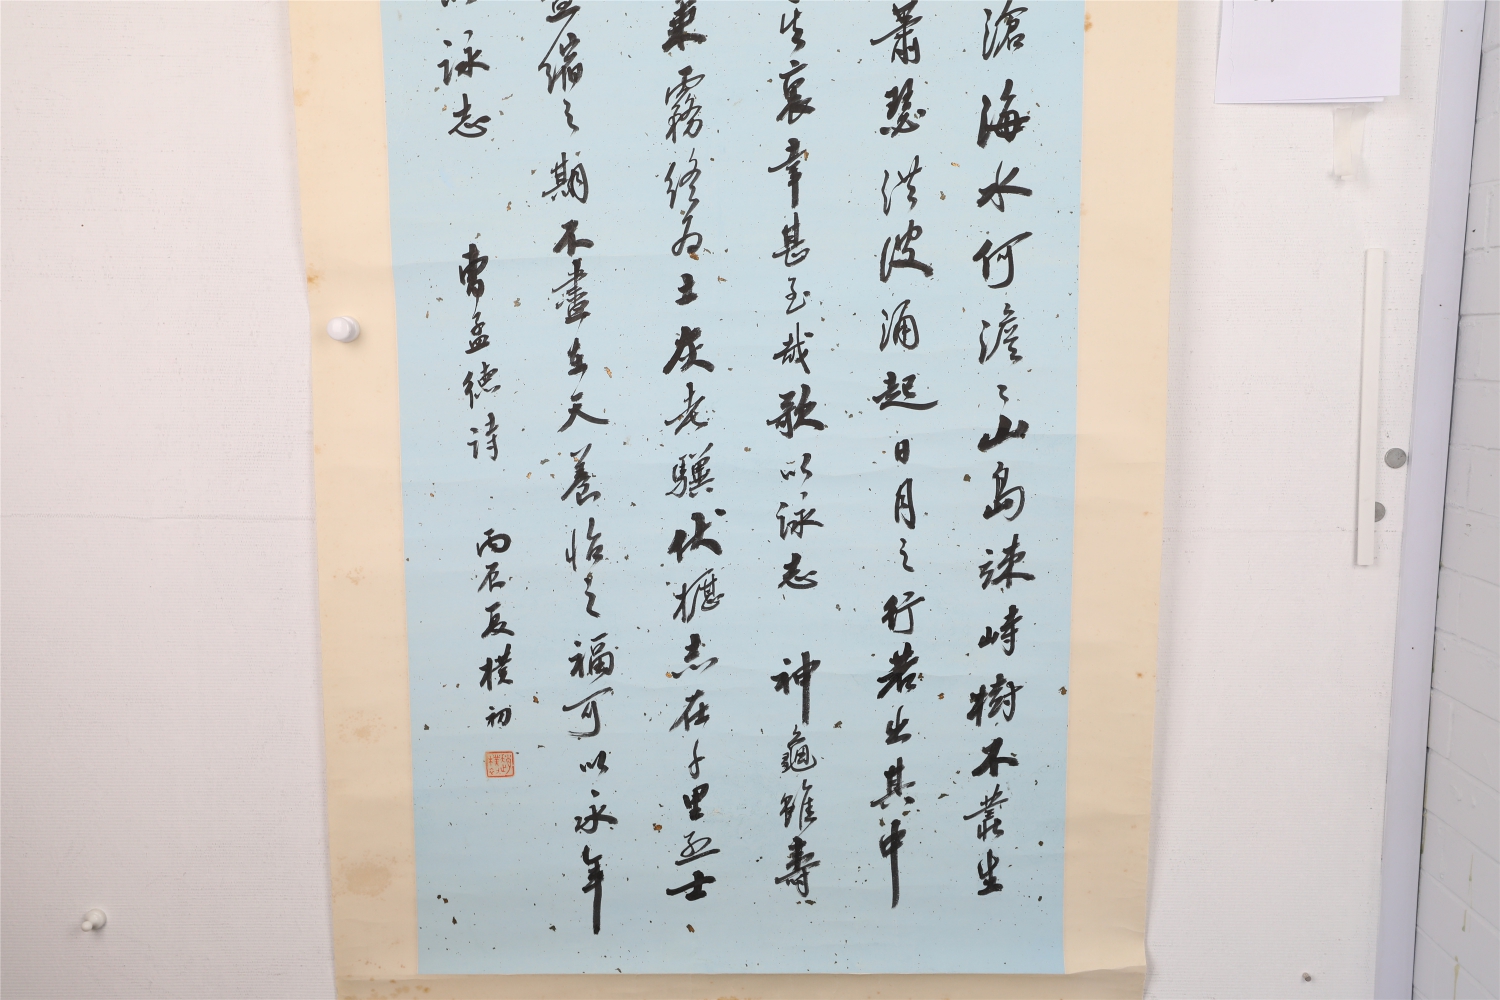 滄海水何澹〻山島竦峙樹不叢生
蕭瑟洪波涌起日月之行若出其中
出裏幸甚至哉歌以詠志 神龜雖壽
乘霧終為土灰老驥伏櫪志在千里烈士
盈縮之期不盡在天養怡之福可以永年
以詠志 曹孟德詩 丙辰夏樸初